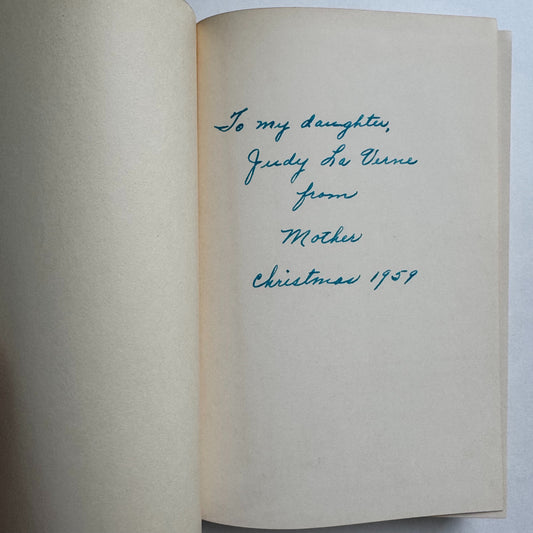 To my daughter,
Judy La Verne
from
Mother
Christmas 1959